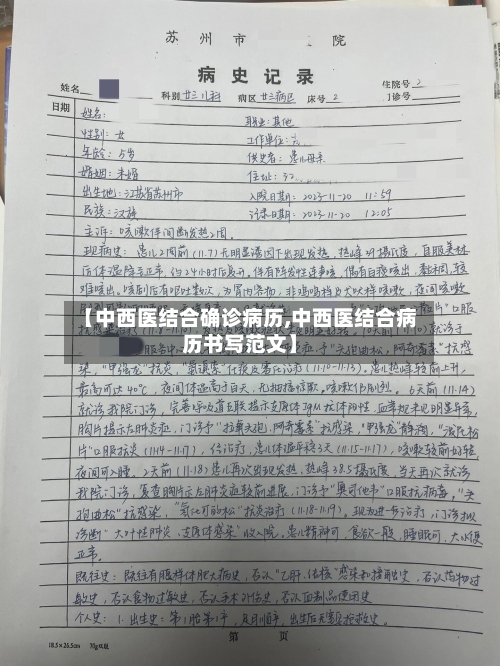 苏州市 院
病史记录
姓名 科别 廿三儿科 病区 廿三病区 床号 2 住院号 2
门诊号
日期 姓名: 职业:其他
性别:女 工作单位:无
年龄:5岁 供史者:患儿母亲
婚姻:未婚 住址:
出生地:江苏省苏州市 入院日期:2023-11-20 11:59
民族:汉族 记录日期:2023-11-20 12:05
主诉:咳嗽伴间断发热2周.
现病史:患儿2周前(11.7)无明显诱因下出现发热,热峰39摄氏度,自服美林
后体温降至正常,约24小时后复升,伴有阵发性连声咳,偶有白痰咳出,黏稠,较
难咳出.咳剧后有呕吐数次,为胃内容物,非鸡鸣样及犬吠样咳嗽,夜间咳嗽
【中西医结合确诊病历,中西医结合病
历书写范文】
"甲强龙"抗炎, (11.10-11.13),患儿热峰较前上升,
最高可达40℃,夜间体温高于白天,无抽搐惊厥,咳嗽仍剧烈. 6天前(11.14)
就诊我院门诊,完善呼吸道五联提示支原体IgM抗体阳性,血常规未见明显异常,
胸片提示左肺炎症,门诊予"头孢太抱、阿奇霉素"抗感染,"甲强龙"静滴,
片"口服抗炎(11.14-11.17),经治疗,患儿体温平稳3天(11.15-11.17),咳嗽较前好转,
夜间可入睡. 2天前(11.18)患儿再次出现发热,热峰38.5摄氏度,当天再次就诊
我院门诊,复查胸片示左肺炎症较前进展,门诊予"奥司他韦"口服抗病毒,"头
孢曲松"抗感染,"氢化可的松"抗炎治疗(11.18-11.19). 现为进一步治疗,门诊拟
诊断"大叶性肺炎、支原体感染"收入院. 患儿精神可,食欲一般,睡眠可,大小便
正常.
既往史:既往有腺样体肥大病史,否认"乙肝、结核"感染和接触史,否认药物过
敏史,否认食物过敏史,否认手术外伤史,否认血制品使用史
个人史:1.出生史:第1胎第1产,足月顺产,出生后无窒息抢救史.
18.5×26.5cm 70g双胶 第 页